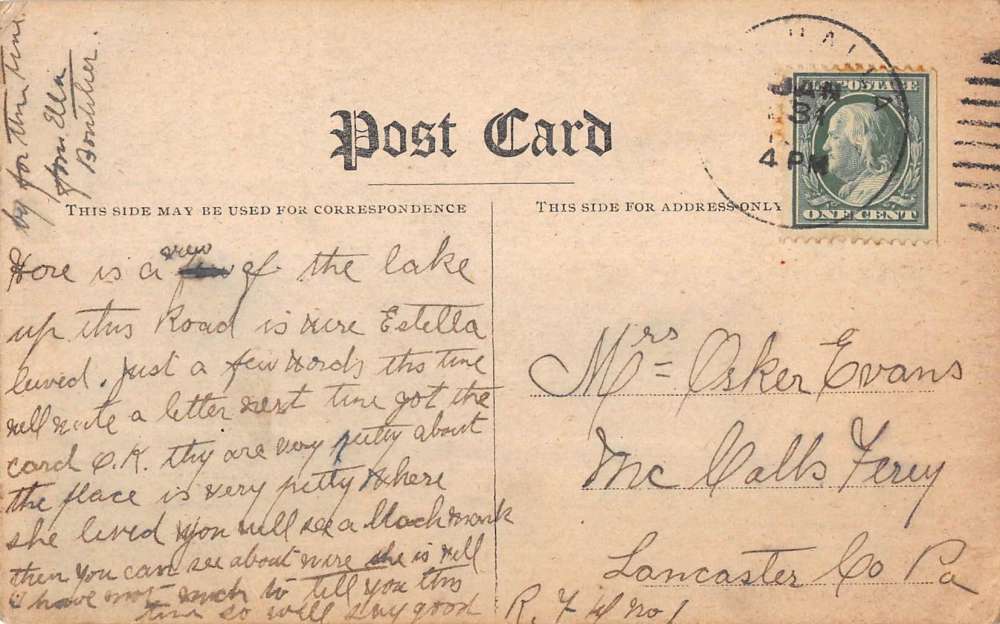 Post Card
THIS SIDE MAY BE USED FOR CORRESPONDENCE
THIS SIDE FOR ADDRESS ONLY
JAN
31
4 PM
U.S. POSTAGE
ONE CENT
Here is a view of the lake
up this Road is wire Estella
lived. Just a few words this time
will write a letter next time got the
card O.K. thy are very pretty about
the place is very pretty where
she lived you will see a black mark
then you can see about wire she is well
I have not much to tell you this
time so will say good
by for this time
from Ella
Mrs = Osker Evans
Mc Calls Ferry
Lancaster Co Pa
R. F d No 1